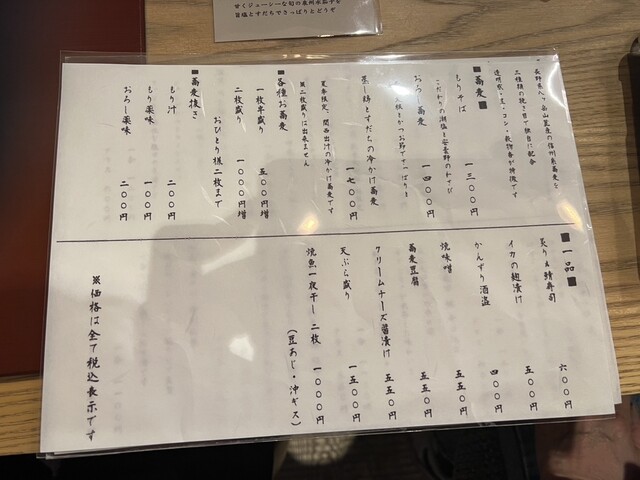 甘くジューシーな旬の泉州水茄子を
旨塩とすだちでさっぱりとどうぞ
長野県八ヶ岳山麓産の信州系蕎麦を
二種類の挽き目で独自に配合
透明感・玉・コシ・穀物香が特徴です
■蕎麦■
もりそば 一三〇〇円
こだわりの潮塩と安曇野のわさび
おろし蕎麦 一四〇〇円
かつお節でさっぱりと
茎し酢とすだちの冷かけ蕎麦 一七〇〇円
夏季限定、関西出汁の冷かけ蕎麦です
※二枚盛りは出来ません
■各種お蕎麦
一枚半盛り 五〇〇円増
二枚盛り 一〇〇〇円増
おひとり様二枚まで
■蕎麦後き
もり汁 二〇〇円
もり薬味 一〇〇円
おろし薬味 二〇〇円
■一品■
炙り〆鯖寿司 六〇〇円
イカの麹漬け 五〇〇円
かんずり酒盗 四〇〇円
焼味噌 五五〇円
蕎麦豆腐 五五〇円
クリームチーズ醤漬け 五五〇円
天ぷら盛り 一五〇〇円
焼魚一夜干し 二枚 一〇〇〇円
(豆あじ・沖ギス)
※価格は全て税込表示です